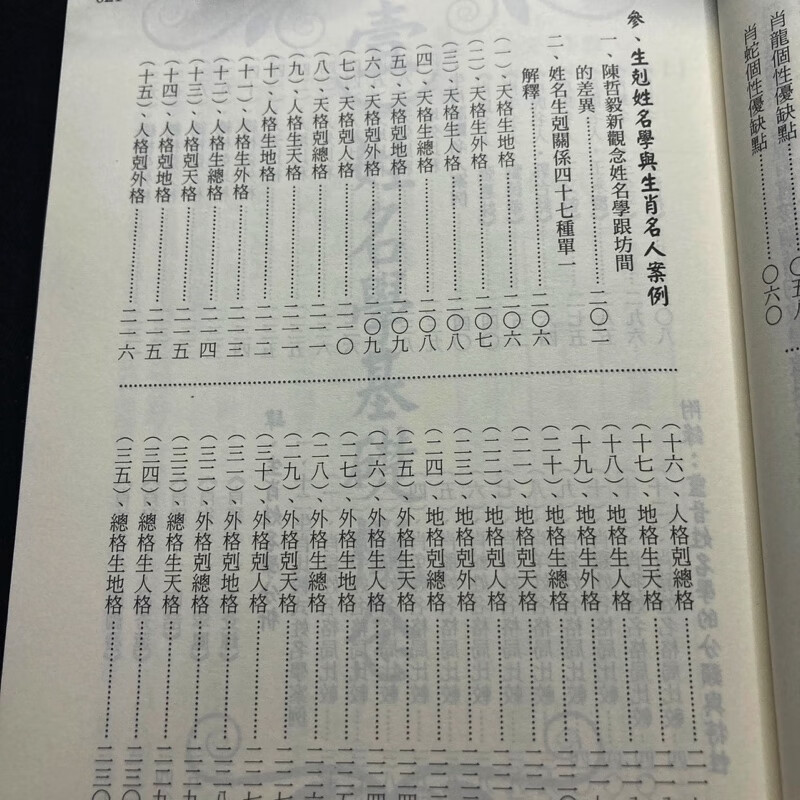 肖龍個性優缺點……〇五八
肖蛇個性優缺點……〇六〇
參、生剋姓名學與生肖名人案例
一、陳哲毅新觀念姓名學跟坊間
的差異……二〇二
二、姓名生剋關係四十七種單一
解釋……二〇六
(一)、天格生地格……二〇六
(二)、天格生外格……二〇七
(三)、天格生人格……二〇八
(四)、天格生總格……二〇八
(五)、天格剋地格……二〇九
(六)、天格剋外格……二〇九
(七)、天格剋人格……二一〇
(八)、天格剋總格……二一一
(九)、人格生天格……二一一
(十)、人格生地格……二一二
(十一)、人格生外格……二一三
(十二)、人格生總格……二一四
(十三)、人格剋天格……二一五
(十四)、人格剋地格……二一五
(十五)、人格剋外格……二一六
(十六)、人格剋總格……
(十七)、地格生天格……
(十八)、地格生人格……
(十九)、地格生外格……
(二十)、地格生總格……
(二一)、地格剋天格……
(二二)、地格剋人格……
(二三)、地格剋外格……
(二四)、地格剋總格……
(二五)、外格生天格……
(二六)、外格生人格……
(二七)、外格生地格……
(二八)、外格生總格……
(二九)、外格剋天格……
(三十)、外格剋人格……
(三一)、外格剋地格……
(三二)、外格剋總格……
(三三)、總格生天格……二二九
(三四)、總格生人格……二三〇
(三五)、總格生地格……二三〇